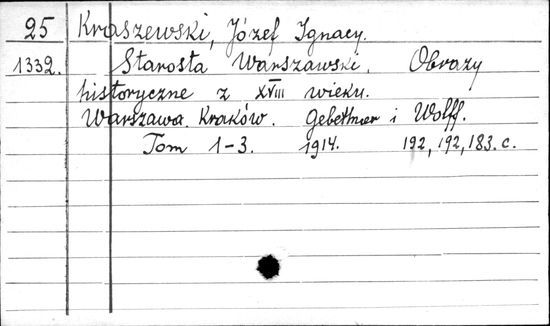 25 Kraszewski, Józef Ignacy.
1332. Starosta Warszawski. Obrazy
historyczne z XVIII wieku.
Warszawa. Kraków. Gebethner i Wolff.
Tom 1-3. 1914. 192, 192, 183. c.